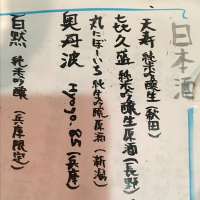 日本酒
天寿 純米吟醸生(秋田)
㐂久盛 純米吟醸生原酒(長野)
丸にぼーいち 純生吟醸原酒(新潟)
奥丹波 Hyogo.85(兵庫)
白黙 純米吟醸(兵庫限定)